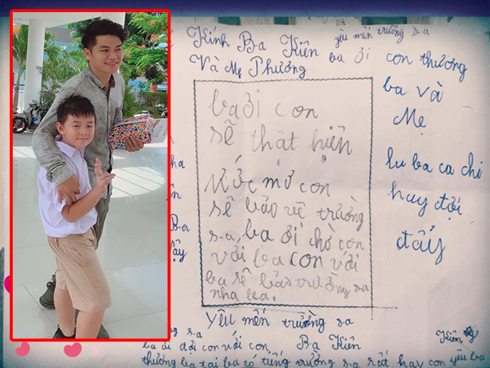 Kính Ba Kiên
yêu mến trường sa
Và Mẹ Phương
ba ơi
con thương
ba và
Mẹ
lu ba ca chi
hay đợi
đấy
ba ơi con
sẽ thật hiện
ước mơ con
sẽ bảo vệ trường
sa, ba ơi chờ con
với loa con với
ba sẽ bảo trường sa
nha loa.
yêu mến trường sa
Ba Kiên
ba ơi đợi con với con
thương ba tại ba có tiếng trường sa rất hay con yêu ba